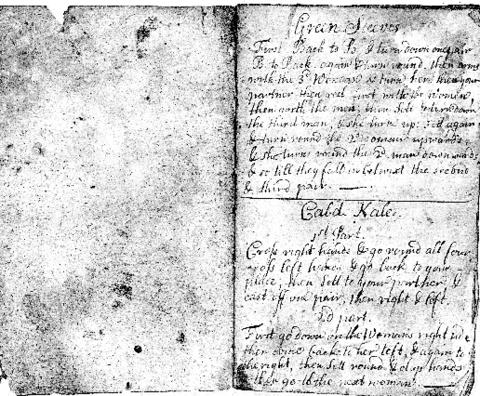 Green Sleeves
First Back to B. & turn down one pair
B. to Back again & turn round, then
with the 3d Woman & turn her, then your
partner then reel first with the women,
then with the men, then Sett & turn down
the third man, & she turn up: Sett again
& turn round the 2d woman upwards,
& she turns round the 2d man downwards
& so till they fall in betwixt the second
& third pair.
Cald Kale.
1st Part.
Cross right hands & go round all four
cross left hands & go back to your
place, then Sett to your partner, &
cast off one pair, then right & left.
2d part.
First go down on the Womans right side
then come back to her left, & again to
the right, then Sett round & hands
go to the next woman